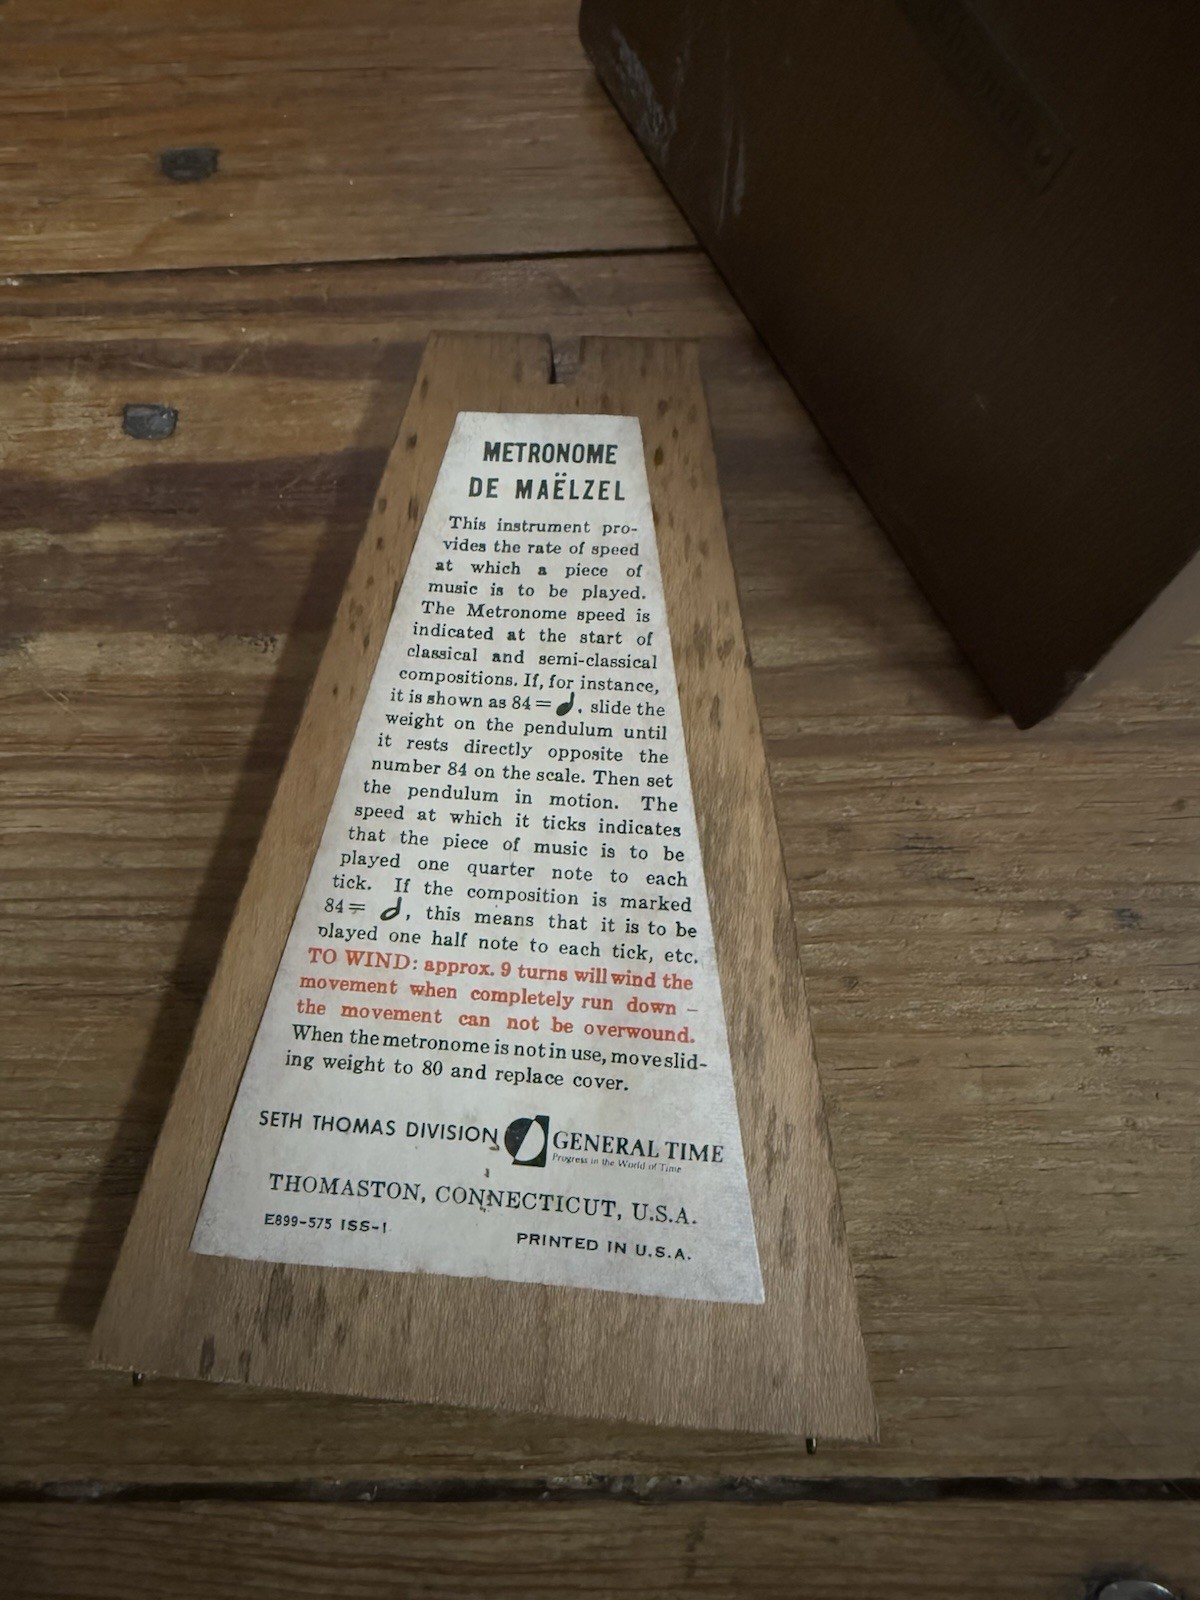 METRONOME
DE MAËLZEL
This instrument pro-
vides the rate of speed
at which a piece of
music is to be played.
The Metronome speed is
indicated at the start of
classical and semi-classical
compositions. If, for instance,
it is shown as 84 = ♩. slide the
weight on the pendulum until
it rests directly opposite the
number 84 on the scale. Then set
the pendulum in motion. The
speed at which it ticks indicates
that the piece of music is to be
played one quarter note to each
tick. If the composition is marked
84 = 𝅗𝅥, this means that it is to be
played one half note to each tick, etc.
TO WIND: approx. 9 turns will wind the
movement when completely run down –
the movement can not be overwound.
When the metronome is not in use, move slid-
ing weight to 80 and replace cover.
SETH THOMAS DIVISION GENERAL TIME
Progress in the World of Time
THOMASTON, CONNECTICUT, U.S.A.
E899-575 ISS-1
PRINTED IN U.S.A.